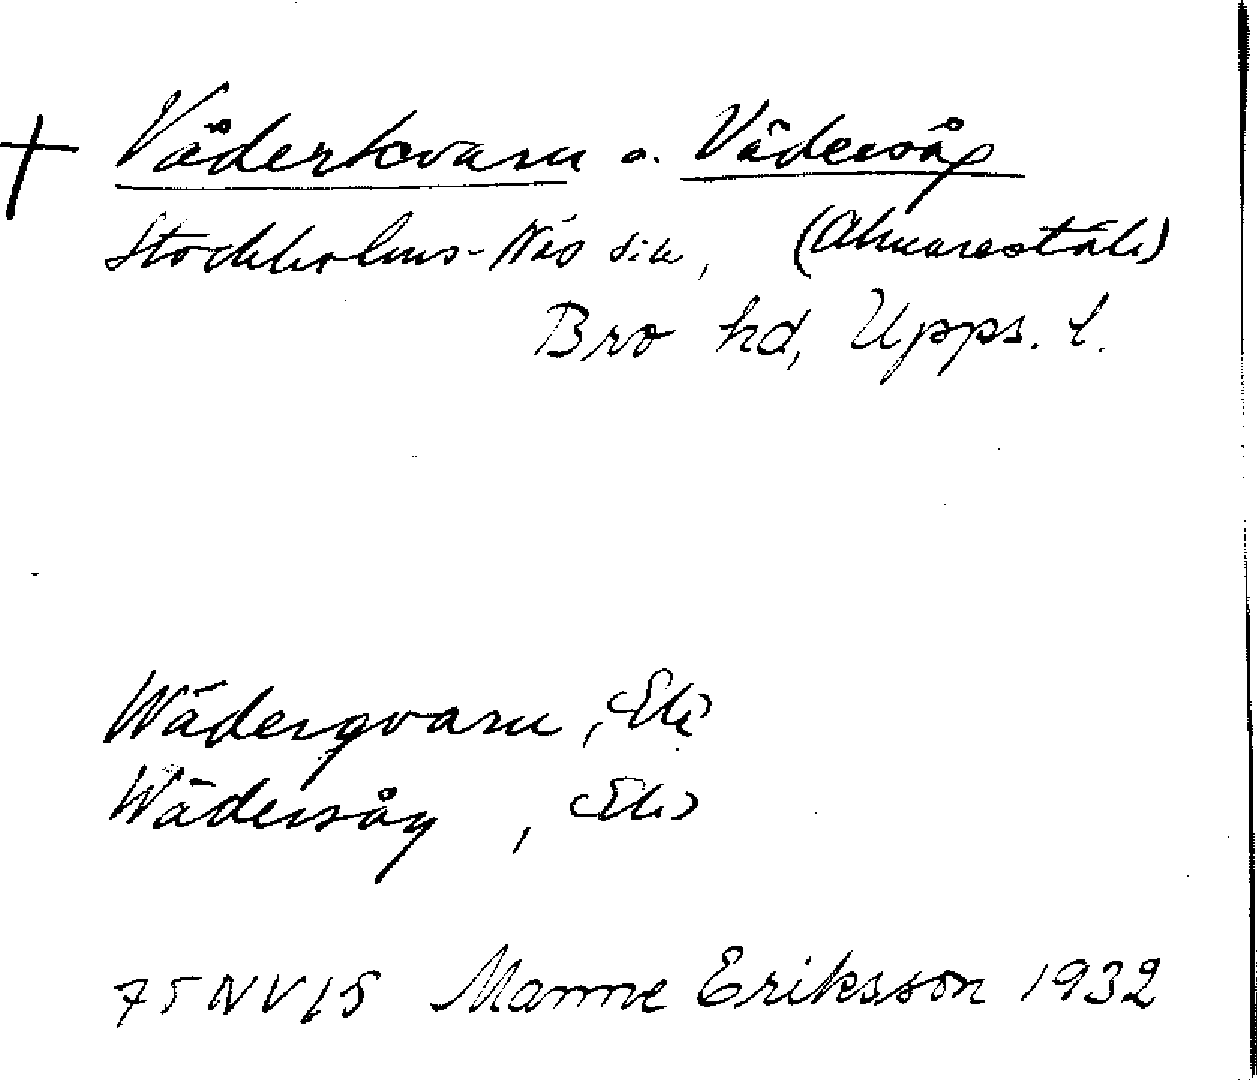 + Väderkvarn o. Vädersåg
Stockholms-Näs sn, (Almarestäk)
Bro hd, Upps. l.
Wäderqvarn, (Ek)
Wädersåg, (Ek)
75 NV 15 Manne Eriksson 1932